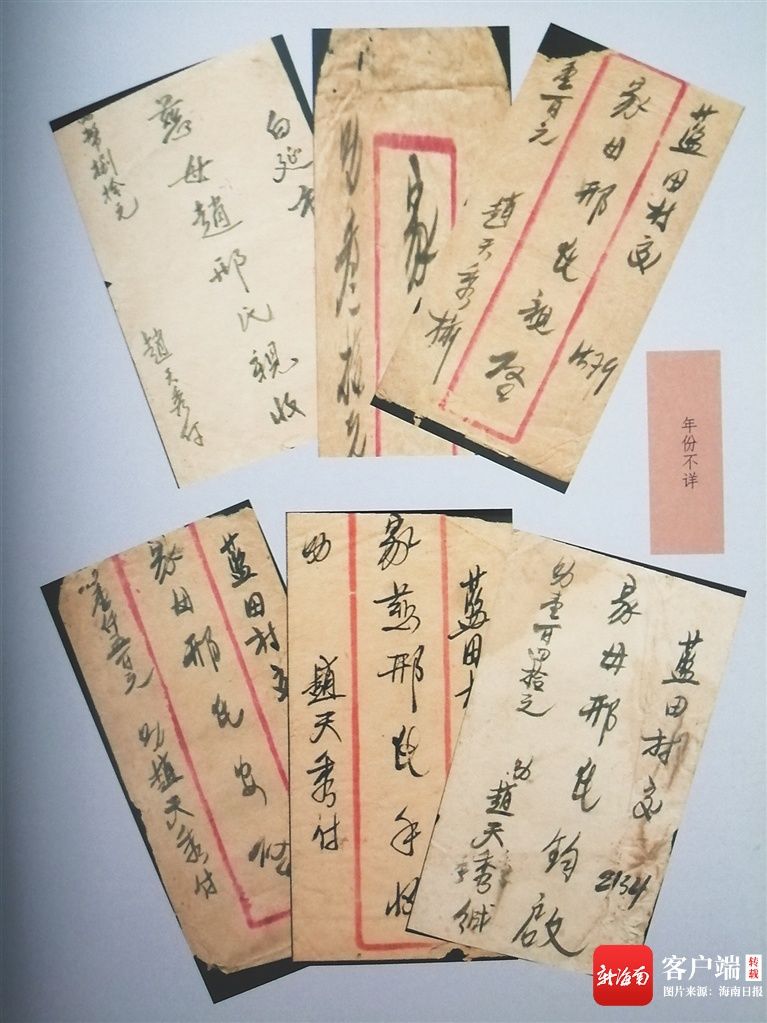 白延
慈母趙邢氏親收
捌拾元
趙天秀付
家
藍田村交
家母邢氏親啓
壹百元
趙天秀
1579
年份不详
藍田村交
家母邢氏安
趙天秀付
藍田
家慈邢氏手收
趙天秀付
藍田村交
家母邢氏鈞啟
壹百四拾元
趙天秀緘
2134
新海南
客户端
转载
图片来源：海南日报